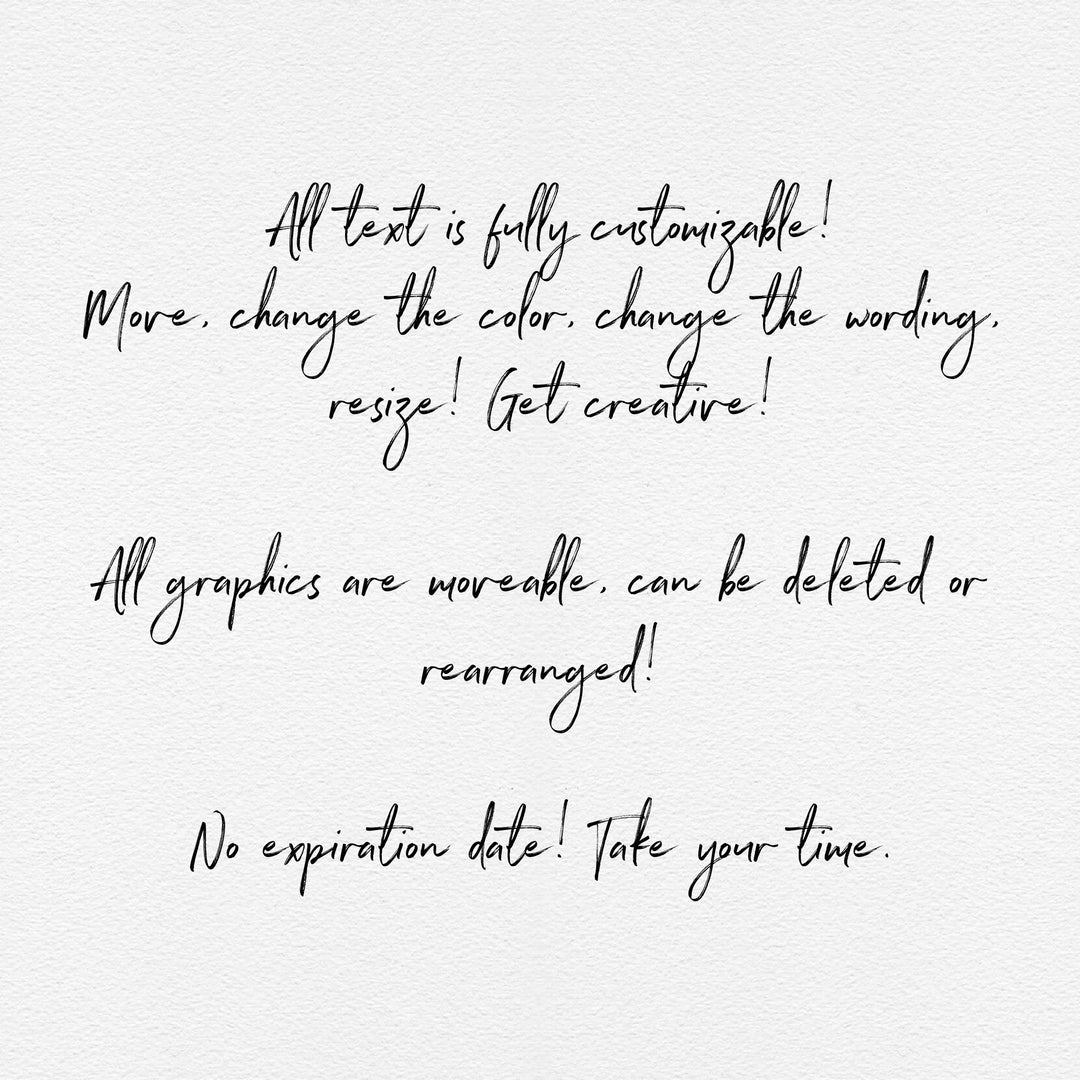 All text is fully customizable!
Move, change the color, change the wording,
resize! Get creative!
All graphics are moveable, can be deleted or
rearranged!
No expiration date! Take your time.